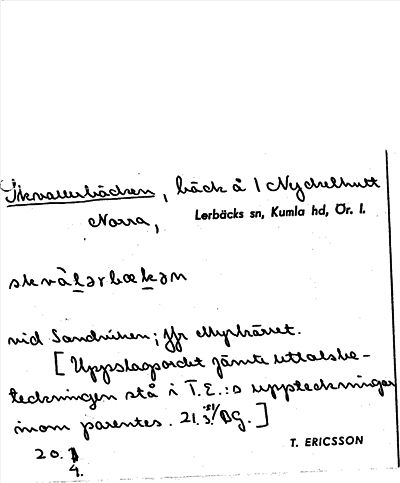 Skvallerbäcken, bäck å 1 Nyckelhutt
Norra,
Lerbäcks sn, Kumla hd, Ör. l.
skvàlərbækən
vid Sandviken; jfr Myrkärret.
[Uppslagsordet jämte uttalsbe-
teckningen stå i T.E.:s uppteckningar
inom parentes. 21.3.51/BG.]
20.
4.
T. ERICSSON